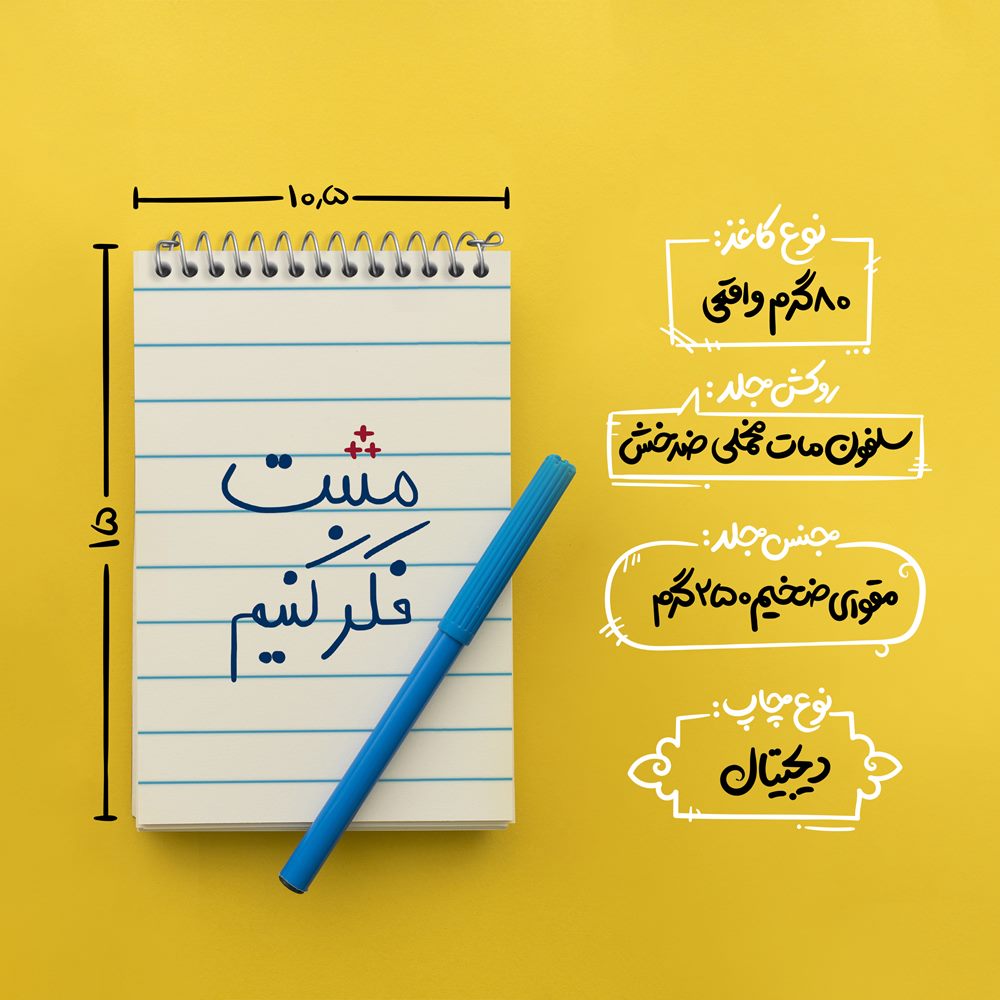 ۱۰,۵
۱۵
مثبت
فکر کنیم
نوع کاغذ:
۸۰ گرم واقعی
روکش جلد:
سلفون مات مخملی ضد خش
جنس جلد:
مقوای ضخیم ۲۵۰ گرم
نوع چاپ:
دیجیتال